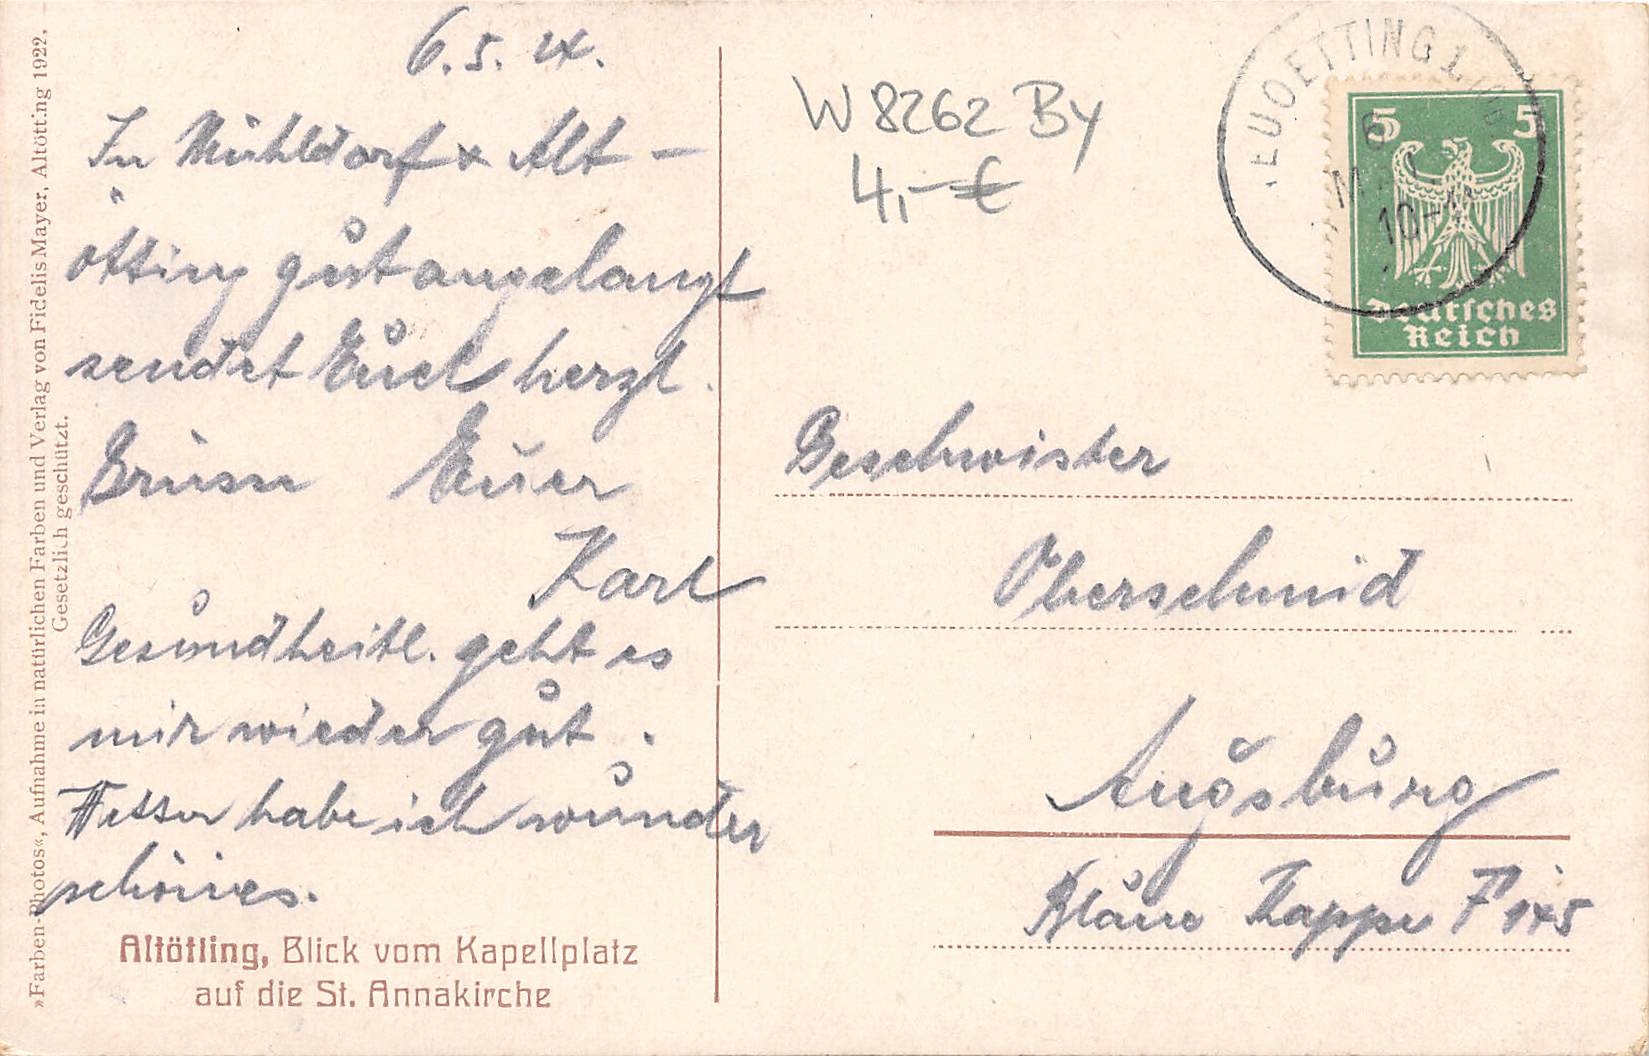 6.5.24.
In Mühldorf + Alt-
ötting gut angelangt
sendet Euch herzl.
Grüsse Euer
Karl
Gesundheitl. geht es
mir wieder gut.
Wetter habe ich wunder
schönes.
Altötting, Blick vom Kapellplatz
auf die St. Annakirche
»Farben-Photos«, Aufnahme in natürlichen Farben und Verlag von Fidelis Mayer, Altötting 1922.
Gesetzlich geschützt.
W 8262 By
4,- €
NEUOETTING 1
6
MAI
10-11
5 5
Deutsches
Reich
Geschwister
Oberschmid
Augsburg
Blaue Kappe F